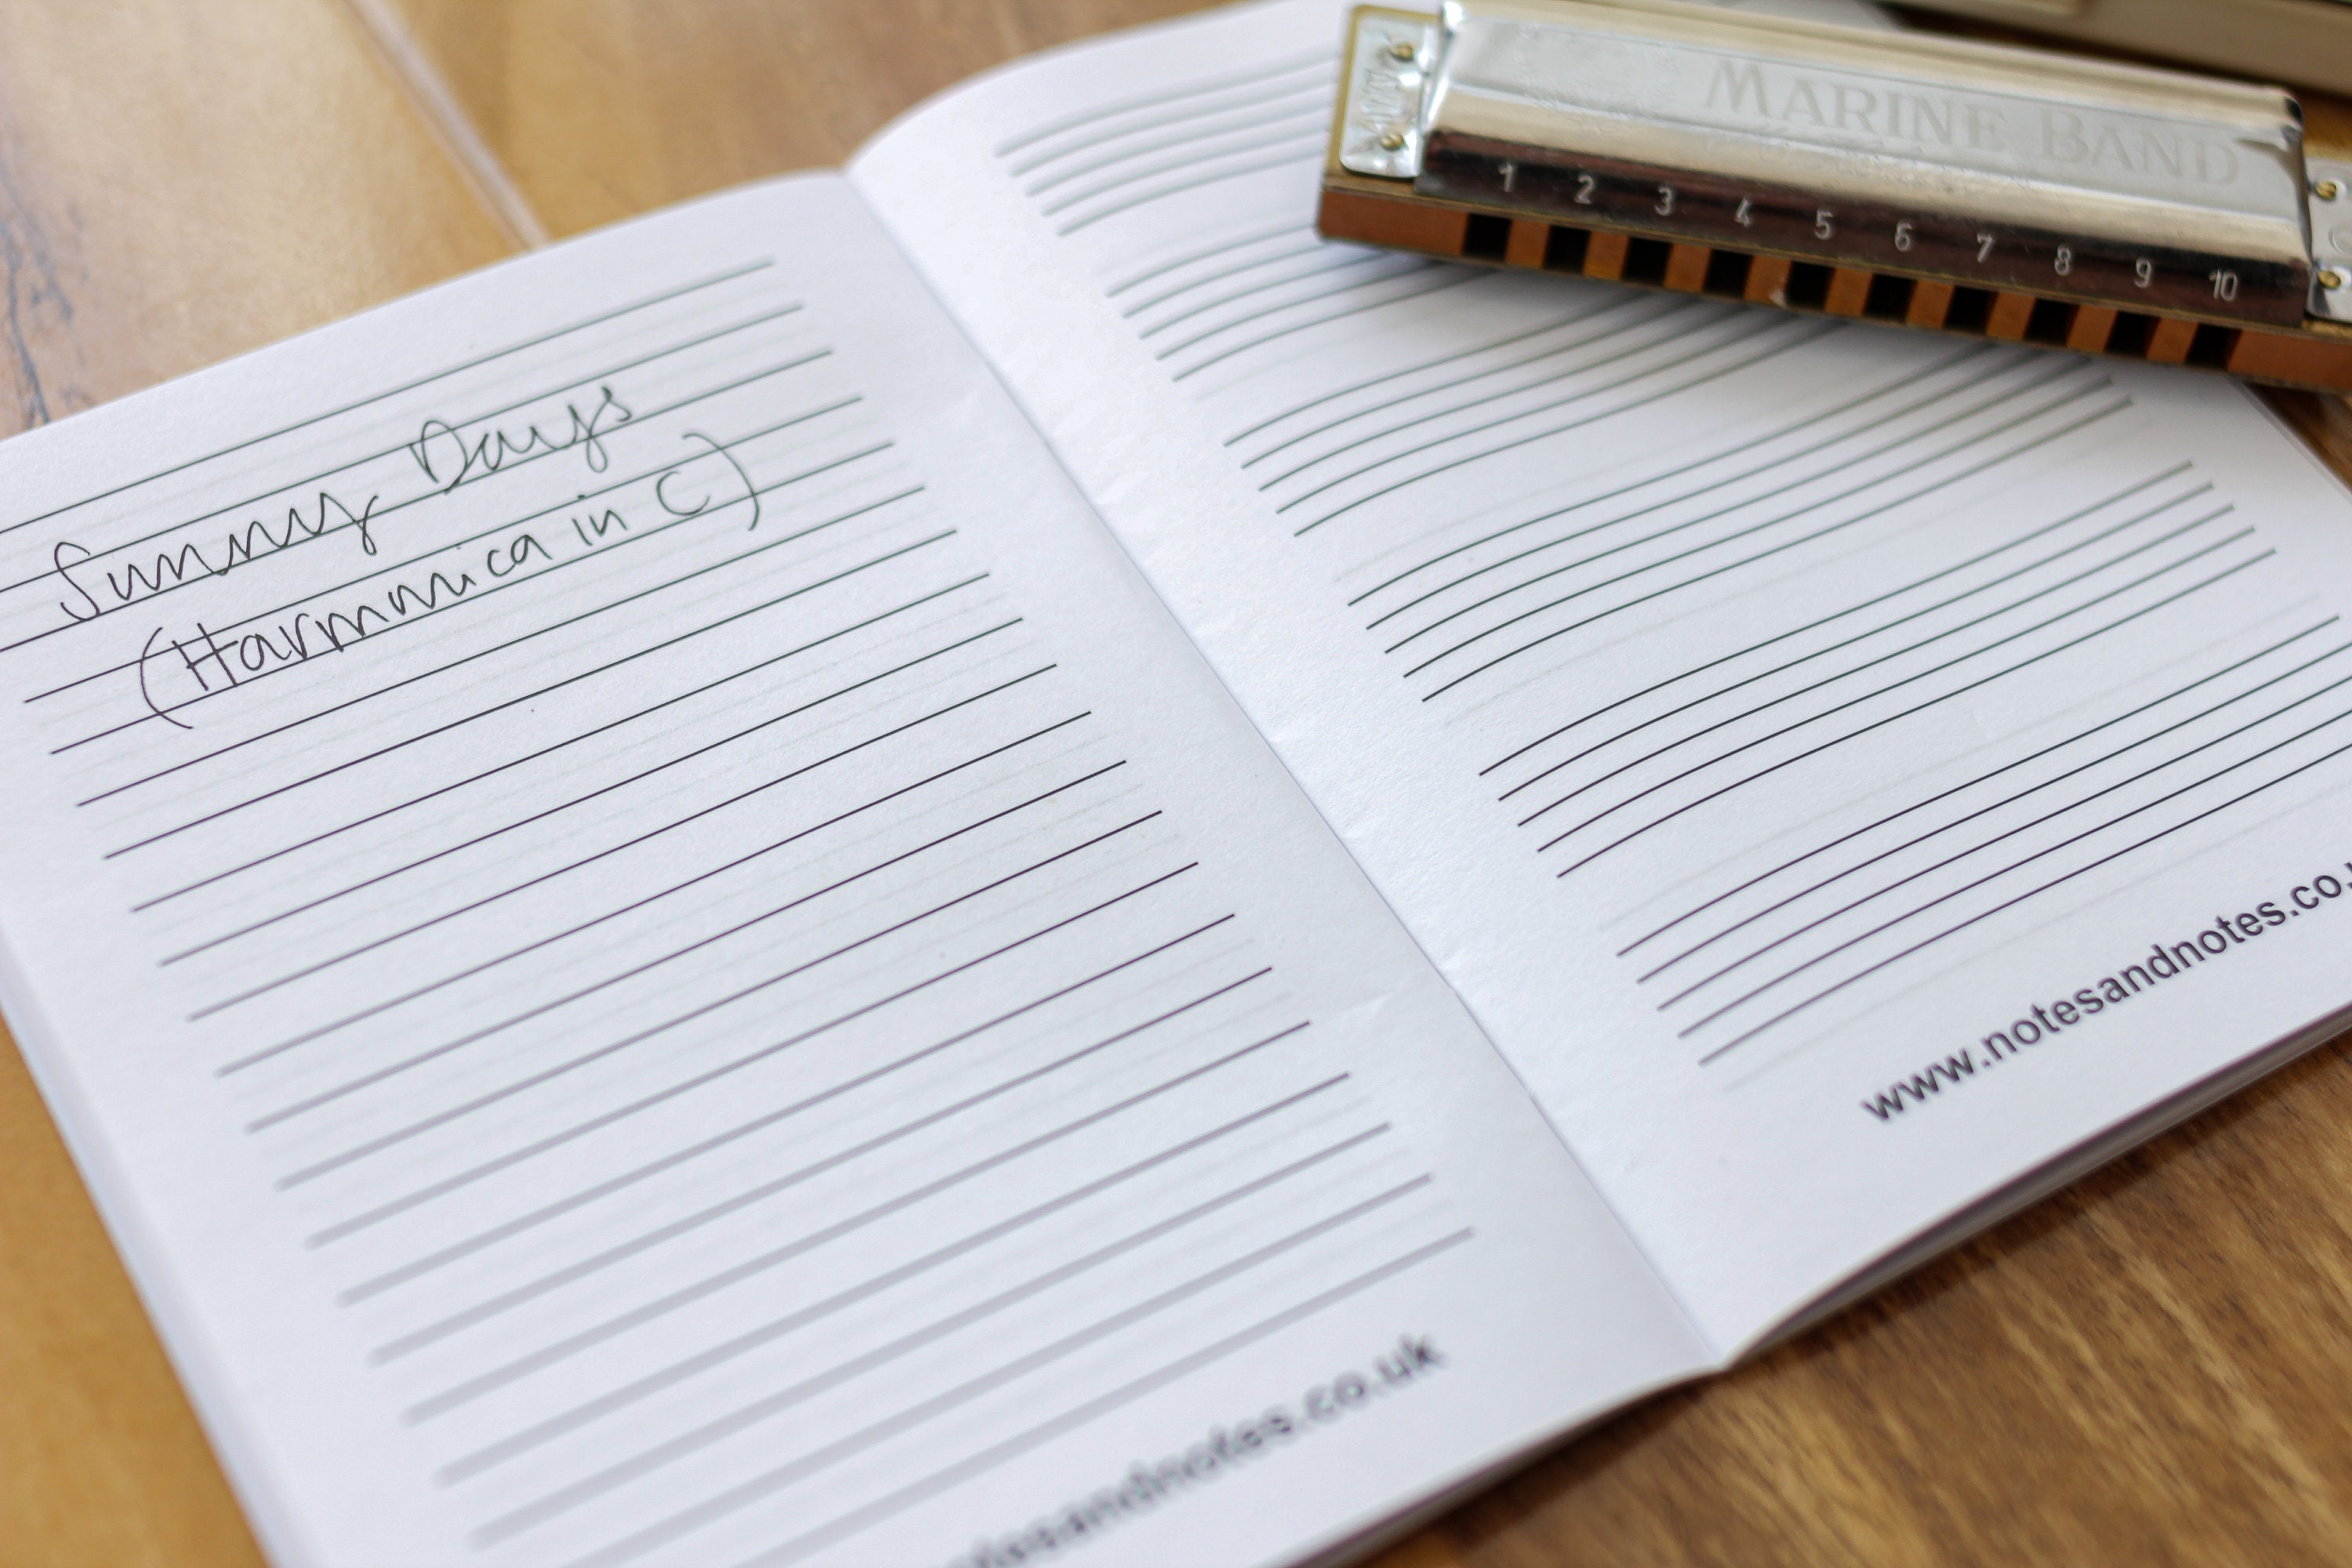 Sunny Days
(Harmnica in C)
MARINE BAND
1 2 3 4 5 6 7 8 9 10
www.notesandnotes.co.
esandnotes.co.uk